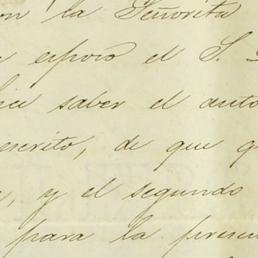 on la Señorita
esposo el S.
saber el auto
escrito, de que q
, y el segundo
para la presen